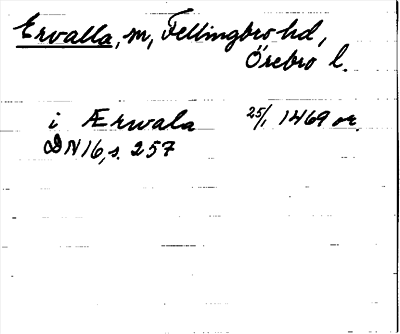 Ervalla, m, Fellingsbro hd,
Örebro l.
i Ærvala 25/1 1469 or.
DN 16, s. 257